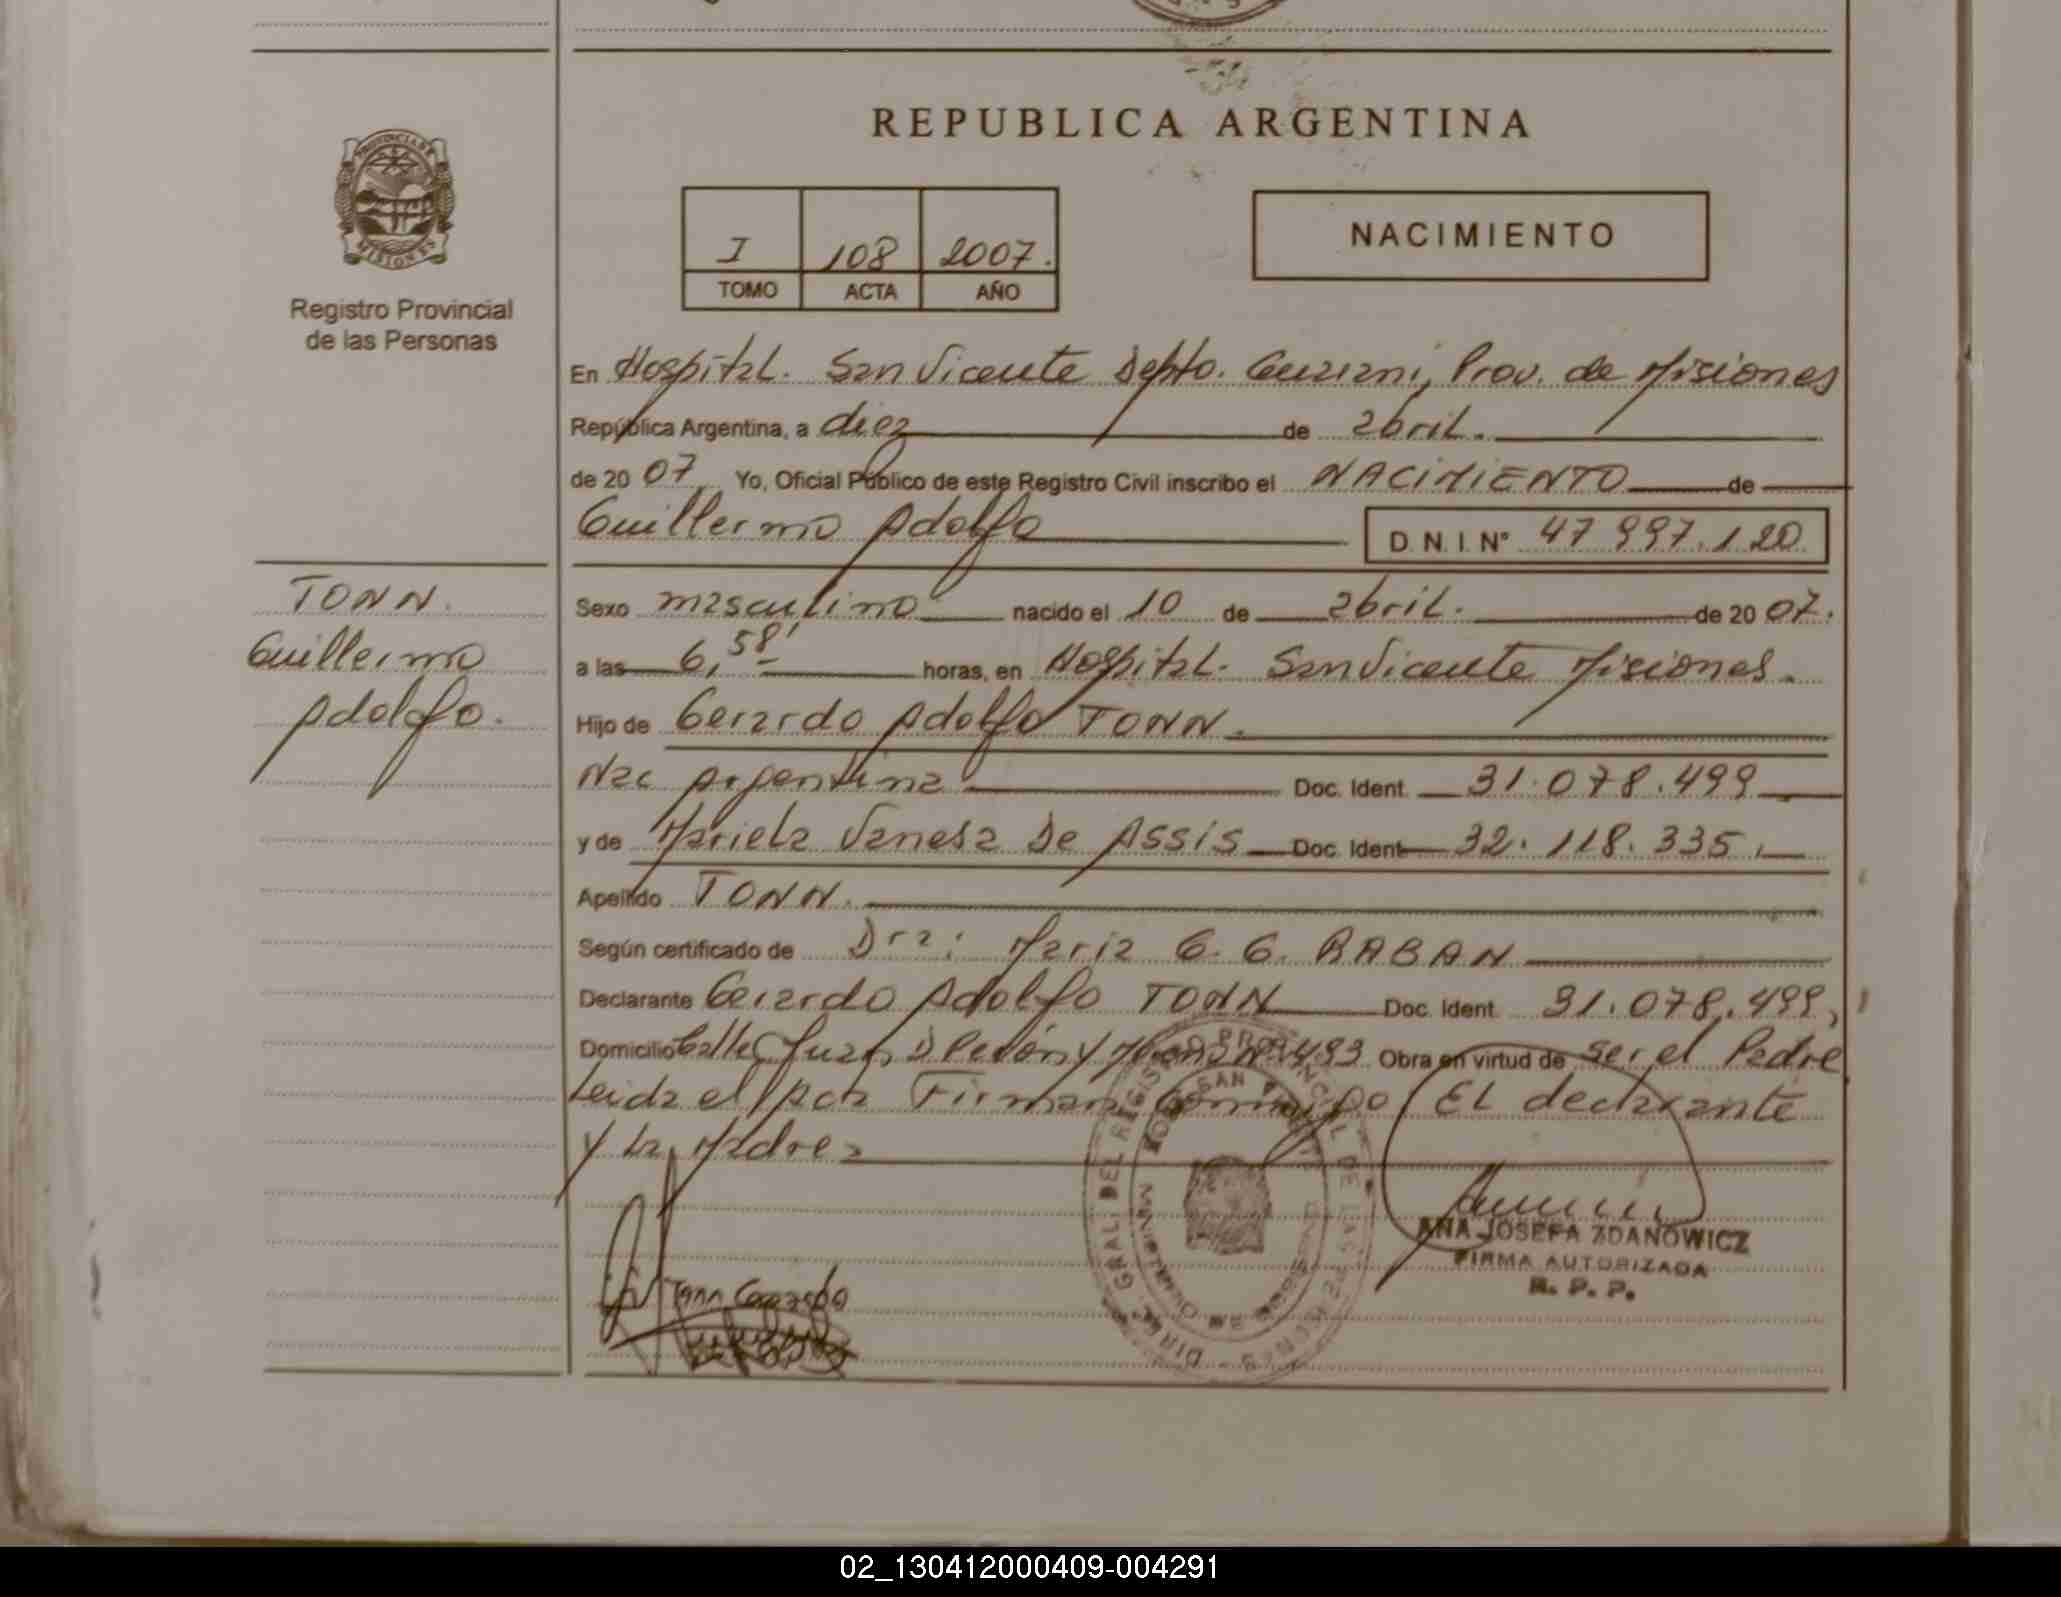 REPUBLICA ARGENTINA
PROVINCIA DE
MISIONES
Registro Provincial
de las Personas
I 108 2007.
TOMO ACTA AÑO
NACIMIENTO
En Hospital. San Vicente Depto. Guarani, Prov. de Misiones
República Argentina, a diez de abril.
de 2007 Yo, Oficial Público de este Registro Civil inscribo el NACIMIENTO de
Guillermo Adolfo D.N.I. N° 47 997.120
TONN.
Guillermo
Adolfo.
Sexo masculino nacido el 10 de abril. de 2007.
a las 6,58' horas, en Hospital. San Vicente Misiones.
Hijo de Gerardo Adolfo TONN.
Nac Argentina Doc. Ident. 31.078.499
y de Mariela Vanesa De Assis Doc. Ident 32.118.335.
Apellido TONN.
Según certificado de Dra: Maria G. G. RABAN
Declarante Gerardo Adolfo TONN Doc. Ident. 31.078.499,
Domicilio Calle Juan D Perón y N° 493 Obra en virtud de ser el Padre
Leida el Acta Firman Conmigo EL declarante
y La Madre
Tonn Gerardo
ANA JOSEFA ZDANOWICZ
FIRMA AUTORIZADA
R. P. P.
02_130412000409-004291